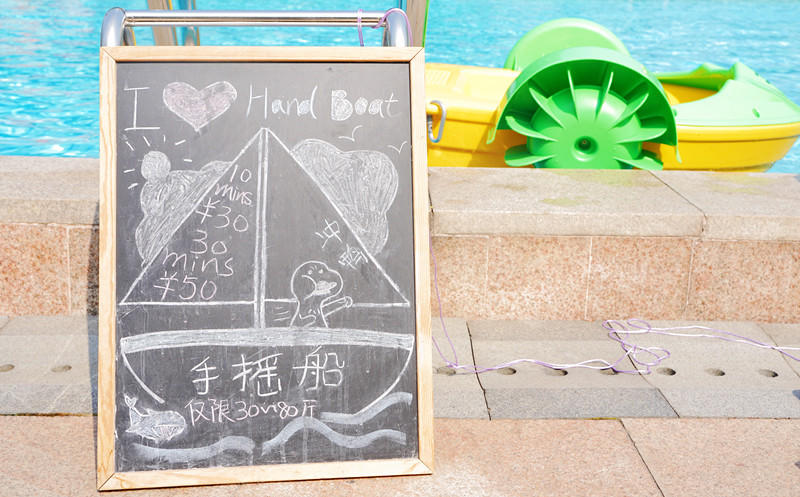 I Hand Boat
10
mins
¥30
30
mins
¥50
冲鸭
手摇船
仅限30~180斤